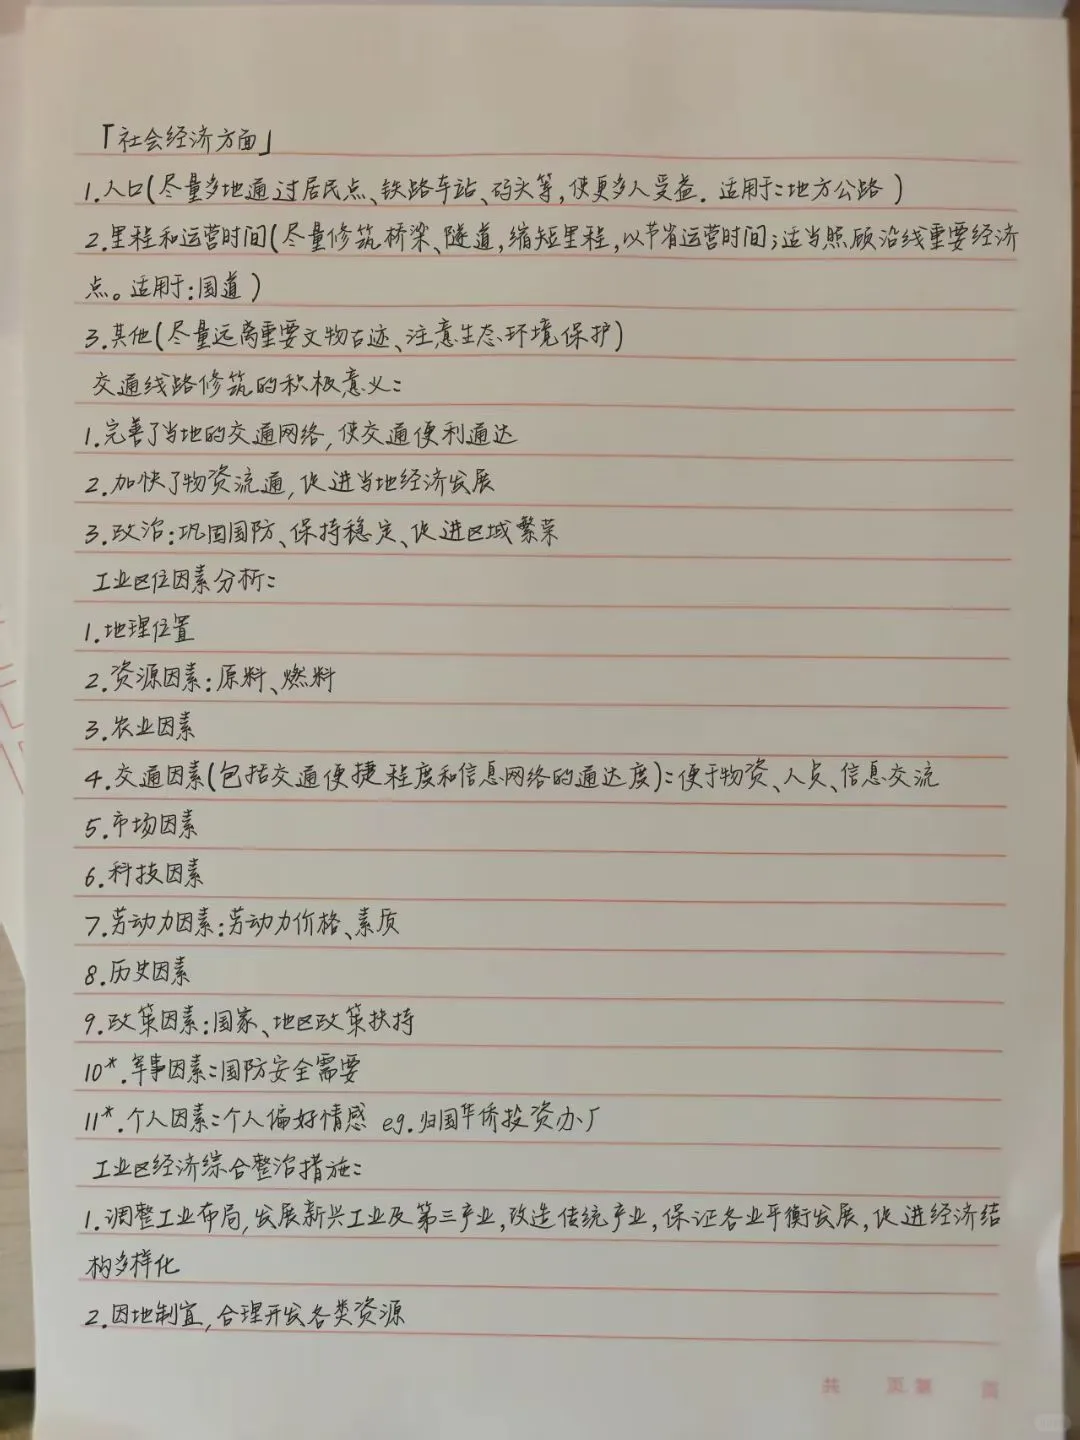 「社会经济方面」
1.人口(尽量多地通过居民点、铁路车站、码头等,使更多人受益. 适用于:地方公路)
2.里程和运营时间(尽量修筑桥梁、隧道,缩短里程,以节省运营时间;适当照顾沿线重要经济
点。适用于:国道)
3.其他(尽量远离重要文物古迹、注意生态环境保护)
交通线路修筑的积极意义:
1.完善了当地的交通网络,使交通便利通达
2.加快了物资流通,促进当地经济发展
3.政治:巩固国防、保持稳定、促进区域繁荣
工业区位因素分析:
1.地理位置
2.资源因素:原料、燃料
3.农业因素
4.交通因素(包括交通便捷程度和信息网络的通达度):便于物资、人员、信息交流
5.市场因素
6.科技因素
7.劳动力因素:劳动力价格、素质
8.历史因素
9.政策因素:国家、地区政策扶持
10*.军事因素:国防安全需要
11*.个人因素:个人偏好情感 eg.归国华侨投资办厂
工业区经济综合整治措施:
1.调整工业布局,发展新兴工业及第三产业,改造传统产业,保证各业平衡发展,促进经济结
构多样化
2.因地制宜,合理开发各类资源
共 页 第 页